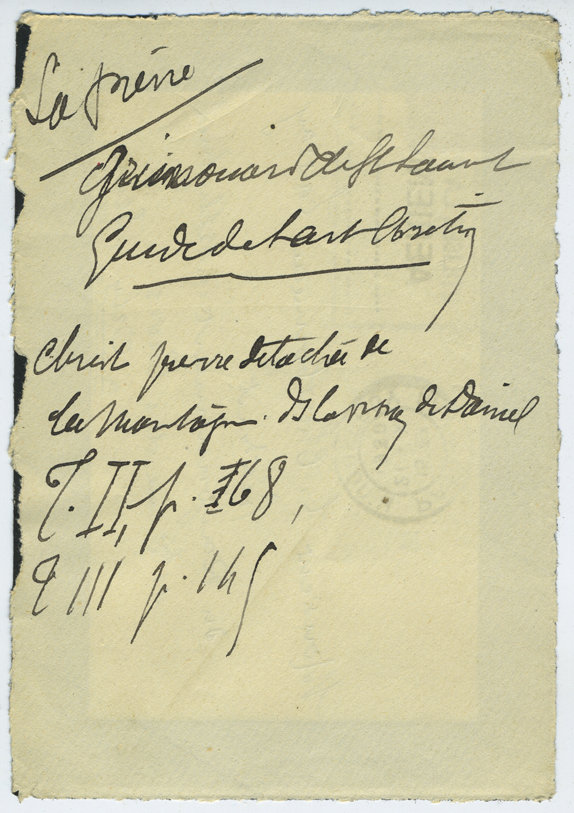 La pierre
Grimouard de St Laurent
Guide de l'art Chrétien
Christ pierre détachée de
la Montagne. Ds la vision de Daniel
T. II, p. 68,
T III p. 145